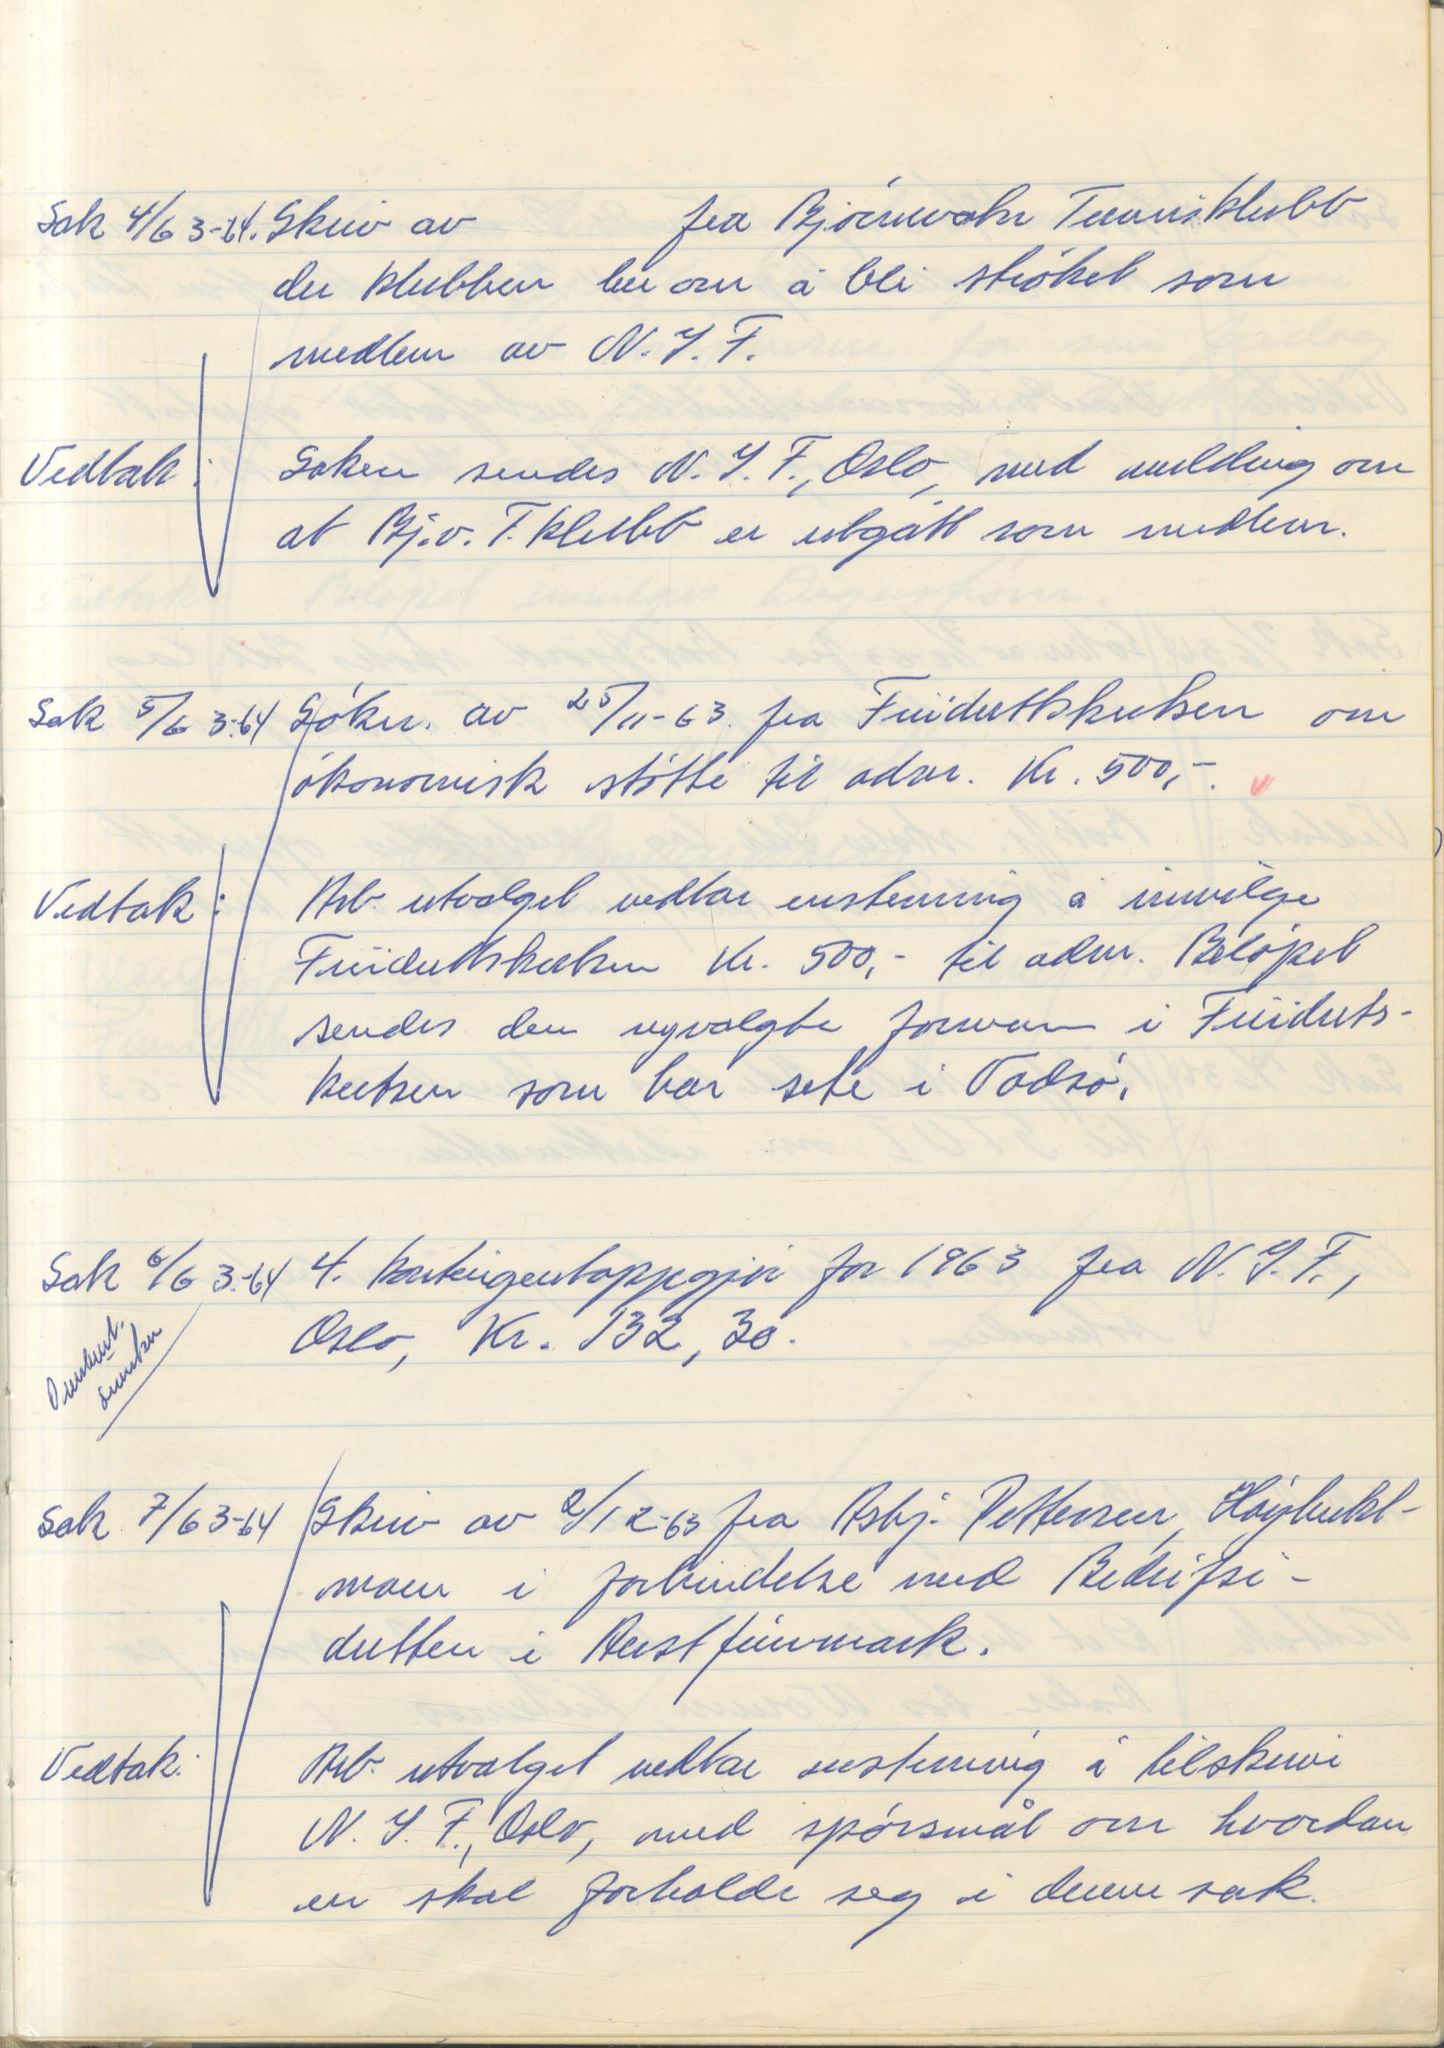 Sak 4/63-64. Skriv av fra Bjørnevatn Tennisklubb
der klubben ber om å bli strøket som
medlem av N.I.F.
Vedtak: Saken sendes N.I.F., Oslo, med melding om
at Bj.v. T.klubb er utgått som medlem.
Sak 5/63-64 Søkn. av 25/11-63 fra Friidrettskretsen om
økonomisk støtte til adm. Kr. 500,-.
Vedtak: Arb. utvalget vedtar enstemmig å innvilge
Friidrettskretsen Kr. 500,- til adm. Beløpet
sendes den nyvalgte formann i Friidretts-
kretsen som har sete i Vadsø.
Sak 6/63-64 4. Kontingentoppgjør for 1963 fra N.I.F.,
Oslo, Kr. 132,30.
Sak 7/63-64 Skriv av 2/12-63 fra Asbj. Pettersen, Høybukt-
moen i forbindelse med Bedrifsi-
dretten i Aust finnmark.
Vedtak: Arb. utvalget vedtar enstemmig å tilskrive
N.I.F., Oslo, med spørsmål om hvordan
en skal forholde seg i denne sak.